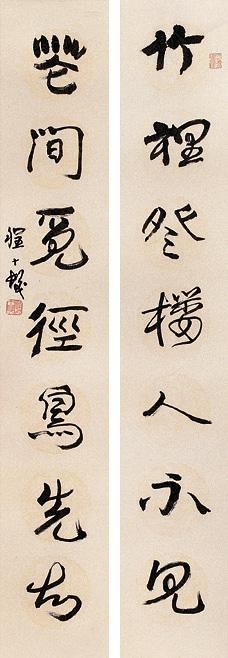 竹裡登楼人不見
花間覓徑鳥先知
程十髮